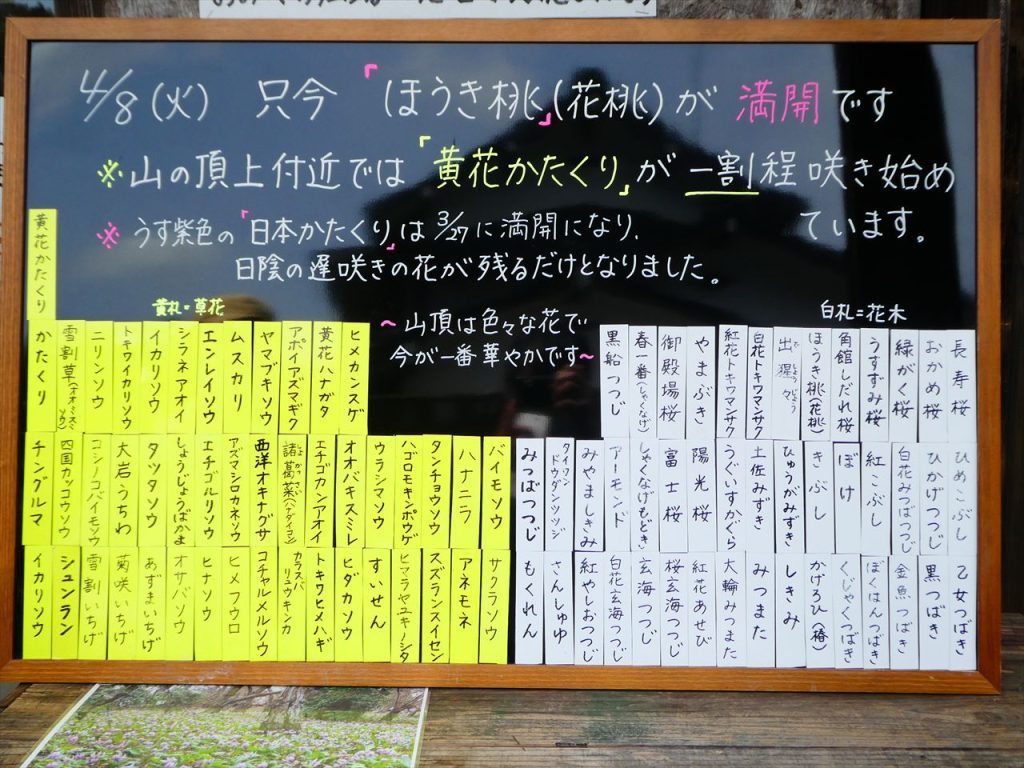 4/8(火) 只今 「ほうき桃」(花桃)が 満開です
※山の頂上付近では「黄花かたくり」が 一割程咲き始め
ています。
※うす紫色の「日本かたくり」は3/27に満開になり、
日陰の遅咲きの花が残るだけとなりました。
黄札=草花
～山頂は色々な花で
今が一番華やかです～
白札=花木
黄花かたくり
ヒメカンスゲ
黄花ハナガタ
アポイアズマギク
ヤマブキソウ
ムスカリ
エンレイソウ
シラネアオイ
イカリソウ
トキワイカリソウ
ニリンソウ
雪割草(オオミスミソウ)
かたくり
バイモソウ
ハナニラ
タンチョウソウ
ハゴロモキンポウゲ
ウラシマソウ
オオバキスミレ
エチゴカンアオイ
諸葛菜(ハナダイコン)
西洋オキナグサ
アズマシロカネソウ
エチゴルリソウ
しょうじょうばかま
タツタソウ
大岩うちわ
コシノコバイモソウ
四国カッコウソウ
チングルマ
サクラソウ
アネモネ
スズランスイセン
ヒマラヤユキノシタ
すいせん
ヒダカソウ
トキワヒメハギ
カラスバリュウキンカ
コチャルメルソウ
ヒメフウロ
ヒナソウ
オサバソウ
あずまいちげ
菊咲いちげ
雪割いちげ
シュンラン
イカリソウ
長寿桜
おかめ桜
緑がく桜
うすずみ桜
角館しだれ桜
ほうき桃(花桃)
出猩々
白花トキワマンサク
紅花トキワマンサク
やまぶき
御殿場桜
春一番(しゃくなげ)
黒船つつじ
ひめこぶし
ひかげつつじ
白花みつばつつじ
紅こぶし
ぼけ
きぶし
ひゅうがみずき
土佐みずき
うぐいすかぐら
陽光桜
富士桜
しゃくなげもどき
アーモンド
みやましきみ
タイワンドウダンツツジ
みつばつつじ
乙女つばき
黒つばき
金魚つばき
ぼくはんつばき
くじゃくつばき
かげろひ(椿)
しきみ
みつまた
大輪みつまた
紅花あせび
桜玄海つつじ
玄海つつじ
白花玄海つつじ
紅やしおつつじ
さんしゅゆ
もくれん